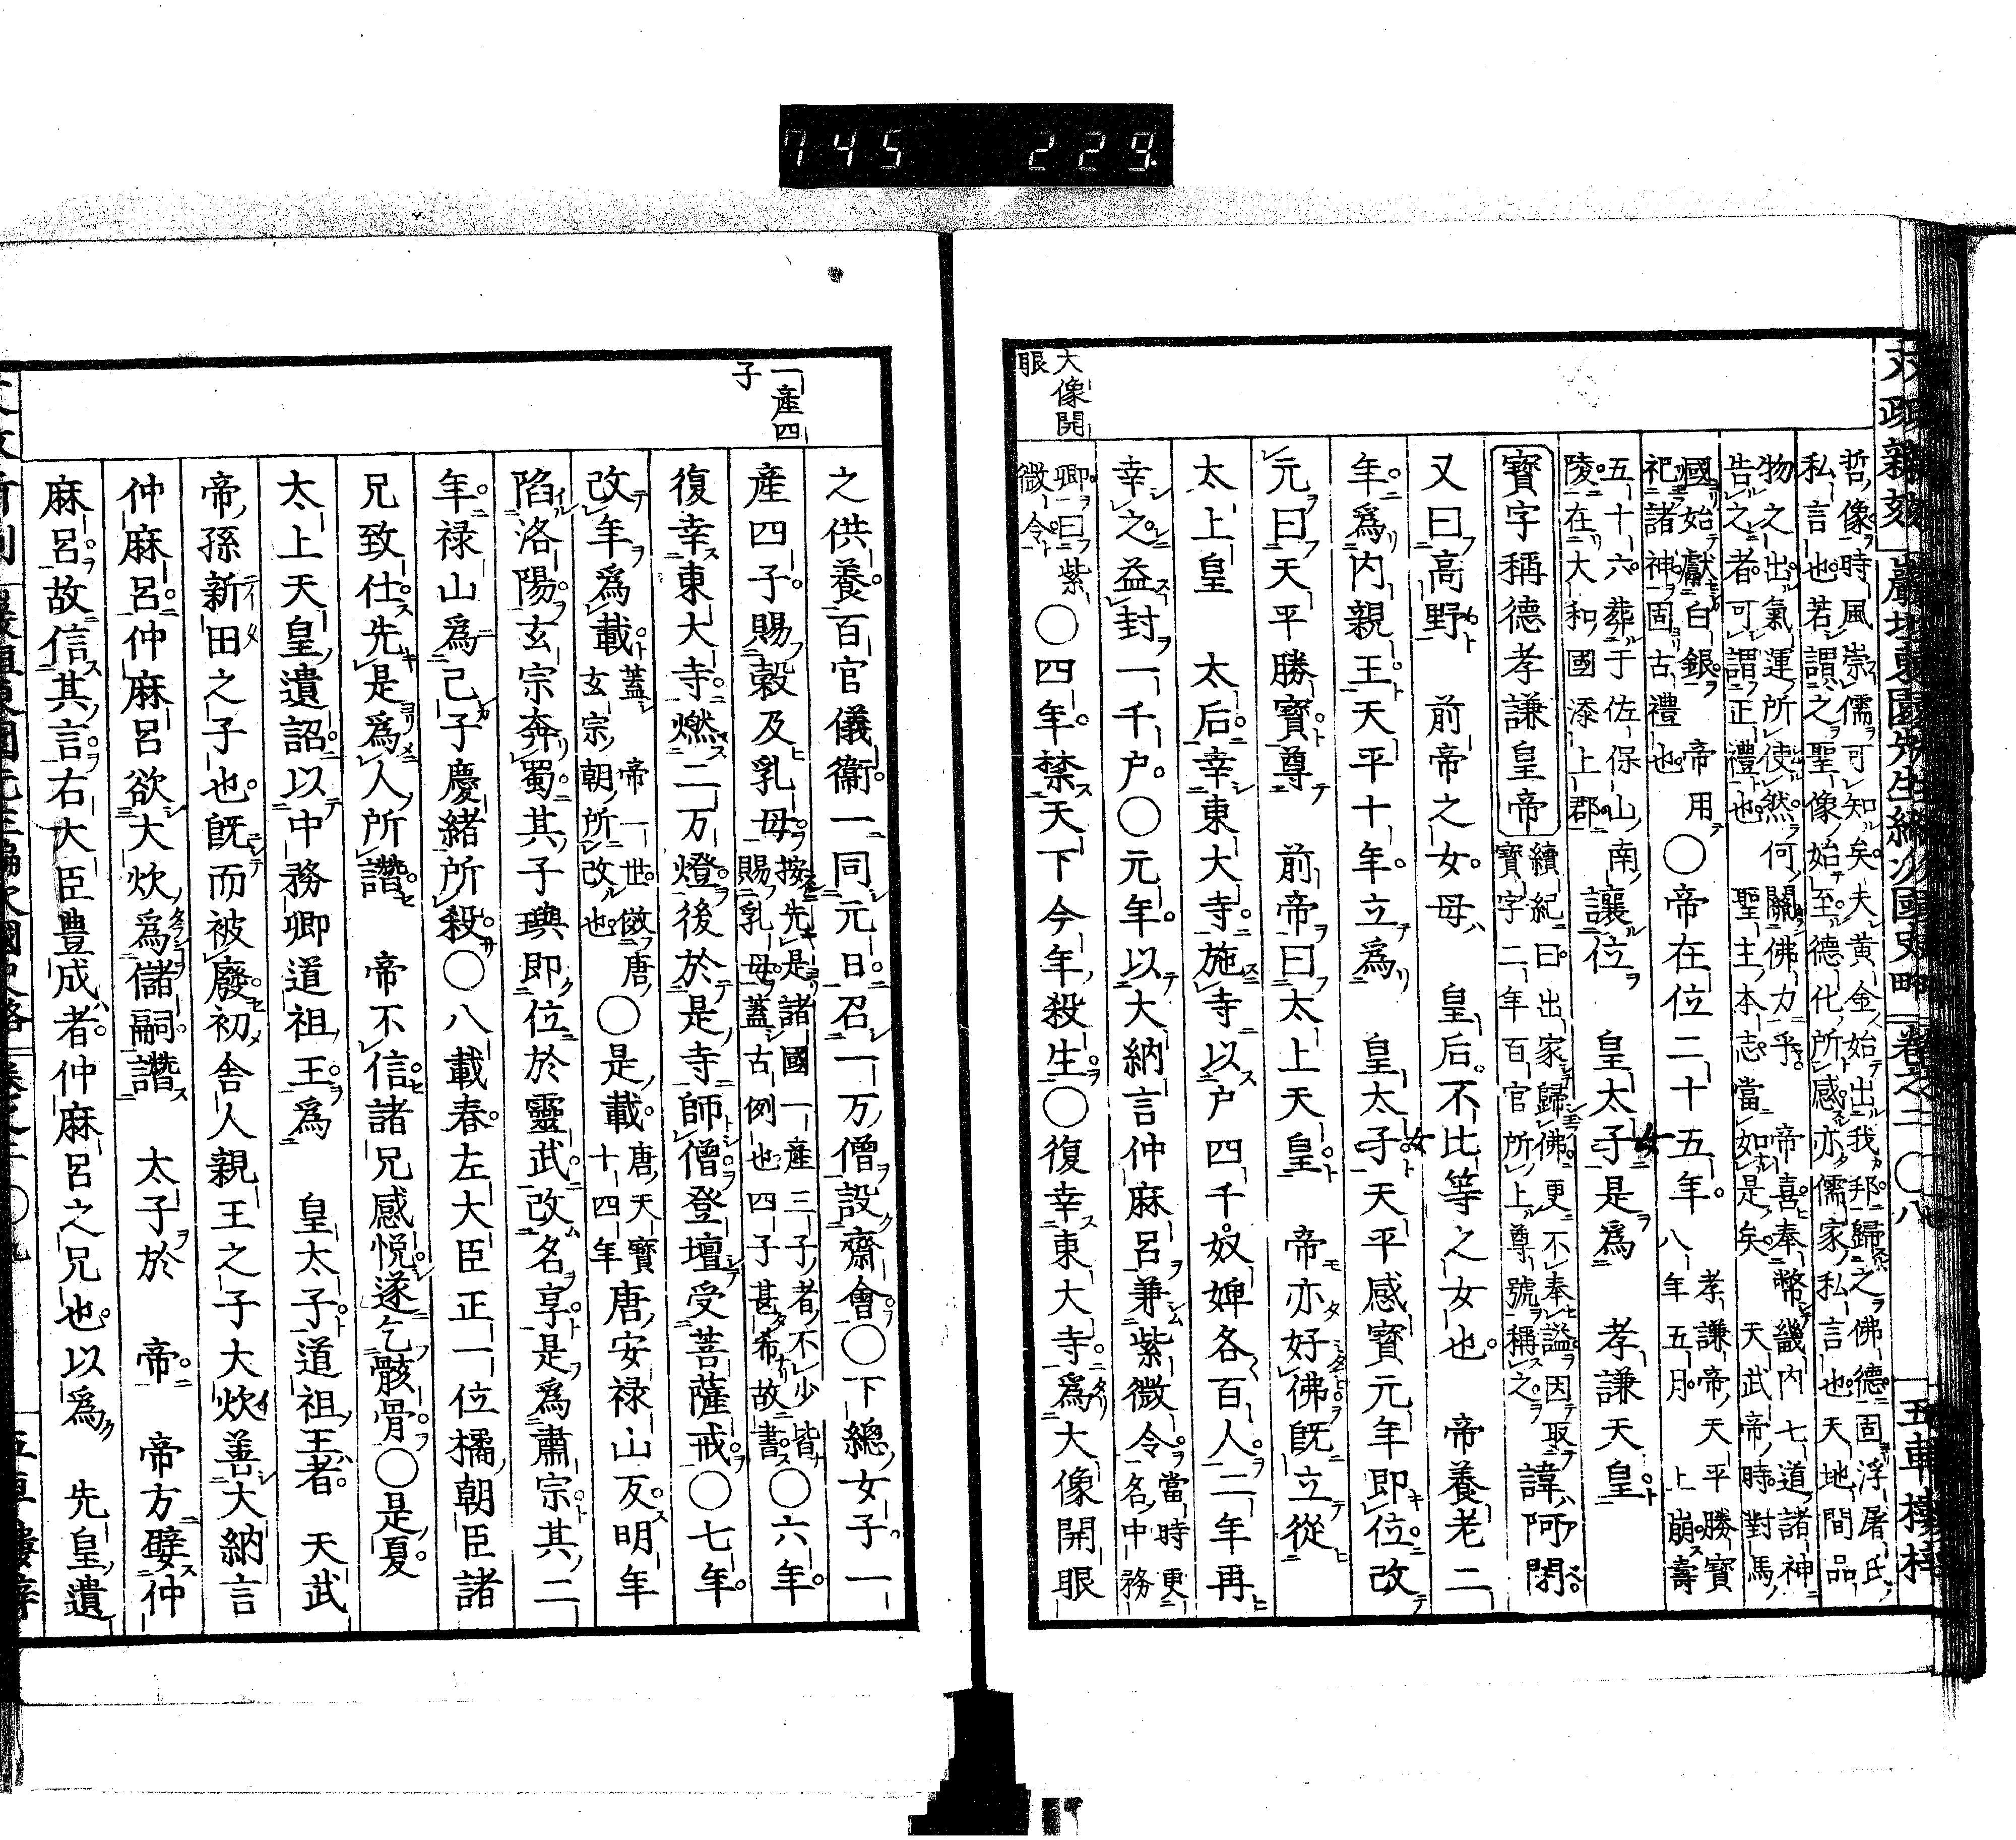 745 229.
文政新刻 巖垣東園先生編次國史略 卷之二 〇八 五車樓梓
大像開眼
哲像時風崇儒可知矣夫黄金始出我邦歸之佛德固浮屠氏
私言也若謂之聖像始至德化所感亦儒家私言也天地間品
物之出氣運所使然何關佛力乎 帝喜奉幣畿内七道諸神
告之者可謂正禮也 聖主本志當如是矣 天武帝時對馬
國始獻白銀 帝用
祀諸神固古禮也〇帝在位二十五年孝謙帝天平勝寶
八年五月 上崩壽
五十六葬于佐保山南
陵在大和國添上郡讓位 皇太子是爲 孝謙天皇
女
寶字稱德孝謙皇帝續紀曰出家歸佛更不奉謚因取
寶字二年百官所上尊號稱之諱阿閇
又曰高野 前帝之女母 皇后不比等之女也 帝養老二
年爲内親王天平十年立爲 皇太子天平感寶元年即位改
女
元曰天平勝寶尊 前帝曰太上天皇 帝亦好佛既立從
太上皇 太后幸東大寺施寺以户四千奴婢各百人二年再
幸之益封一千户〇元年以大納言仲麻呂兼紫微令當時更
名中務
卿曰紫
微令〇四年禁天下今年殺生〇復幸東大寺爲大像開眼
一産四子
之供養百官儀衞一同元日召一万僧設齋會〇下總女子一
産四子賜穀及乳母按先是諸國一産三子者不少皆
賜乳母蓋古例也四子甚希故書〇六年
復幸東大寺燃二万燈後於是寺師僧登壇受菩薩戒〇七年
改年爲載蓋 帝一世倣唐
玄宗朝所改也〇是載唐天寶
十四年唐安禄山反明年
陷洛陽玄宗奔蜀其子璵即位於靈武改名亨是爲肅宗其二
年禄山爲己子慶緒所殺〇八載春左大臣正一位橘朝臣諸
兄致仕先是爲人所讚 帝不信諸兄感悦遂乞骸骨〇是夏
太上天皇遺詔以中務卿道祖王爲 皇太子道祖王者 天武
帝孫新田之子也既而被廢初舎人親王之子大炊善大納言
仲麻呂仲麻呂欲大炊爲儲嗣讚 太子於 帝 帝方嬖仲
麻呂故信其言右大臣豊成者仲麻呂之兄也以爲 先皇遺